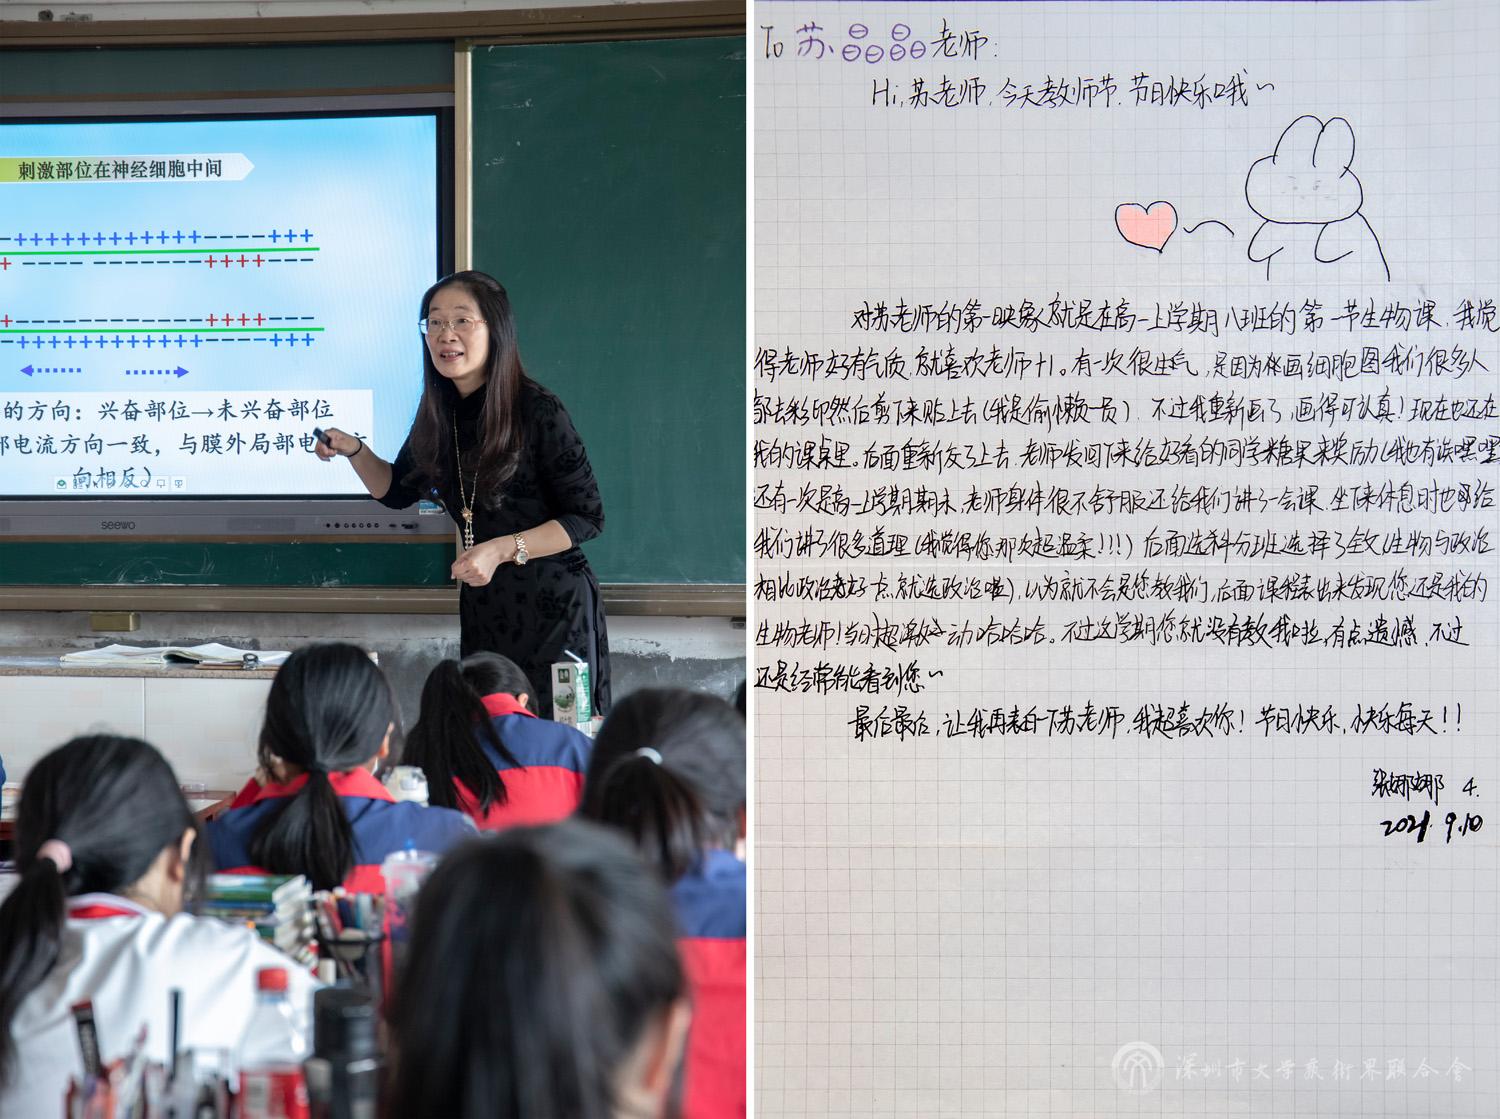 刺激部位在神经细胞中间
-++++++++++++----+++
+ ---- -----++++---
+ ---- -----++++---
-++++++++++++----+++
的方向：兴奋部位→未兴奋部位
部电流方向一致，与膜外局部电
向相反）
seewo
To 苏晶晶老师：
Hi，苏老师，今天教师节，节日快乐哦~
对苏老师的第一映象就是在高一上学期八班的第一节生物课，我觉
得老师好有气质，就喜欢老师十1。有一次很生气，是因为体画细胞图我们很多人
都去彩印然后剪下来贴上去（我是偷懒一员），不过我重新画了，画得可认真！现在也还在
我的课桌里。后面重新交了上去，老师发回下来给好看的同学糖果来奖励（我也有诶嘿嘿
还有一次是高一上学期期末，老师身体很不舒服还给我们讲了一会课，坐下来休息时也给
我们讲了很多道理（我觉得您那次超温柔！！！）后面选科分班选择了全文（生物与政治
相比政治好一点就选政治啦），以为就不会是您教我们，后面课程表出来发现您还是我的
生物老师！当时超激动哈哈哈。不过这学期您就没有教我啦，有点遗憾，不过
还是经常能看到您~
最后最后，让我再表白一下苏老师，我超喜欢你！节日快乐，快乐每天！！
张娜娜 4.
2021.9.10
深圳市文学艺术界联合会